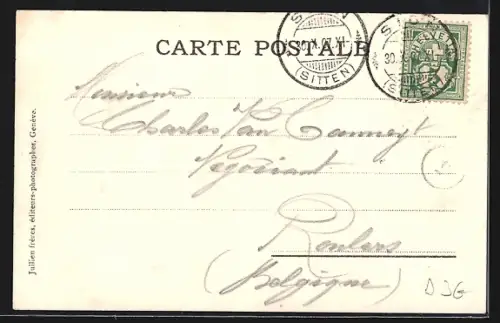 CARTE POSTALE
30.X.07.XI
(SITTEN)
HELVETIA
30.X
(SITTEN)
Monsieur
Charles Van Canneyt
Négociant
Roulers
(Belgique)
Jullien frères, éditeurs-photographes, Genève.
DJG